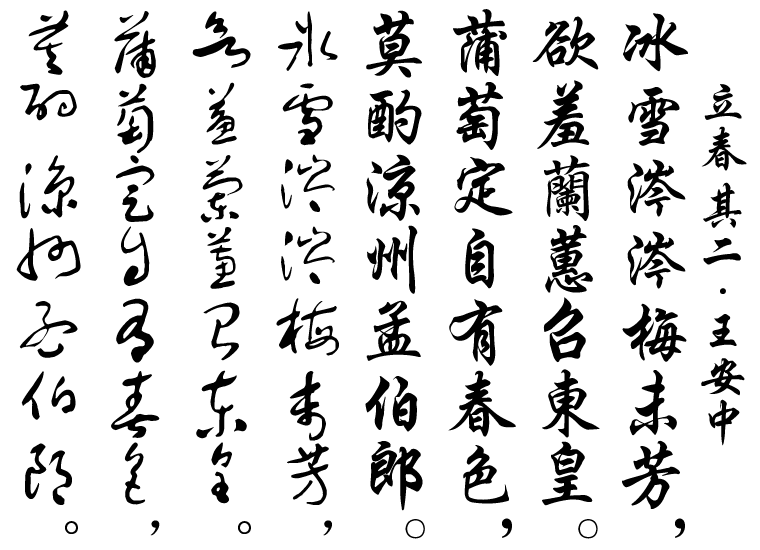 立春其二·王安中
冰雪涔涔梅未芳，
欲羞蘭蕙召東皇。
蒲萄定自有春色，
莫酌涼州孟伯郎。
冰雪涔涔梅未芳，
欲羞蘭蕙召東皇。
蒲萄定自有春色，
莫酌涼州孟伯郎。